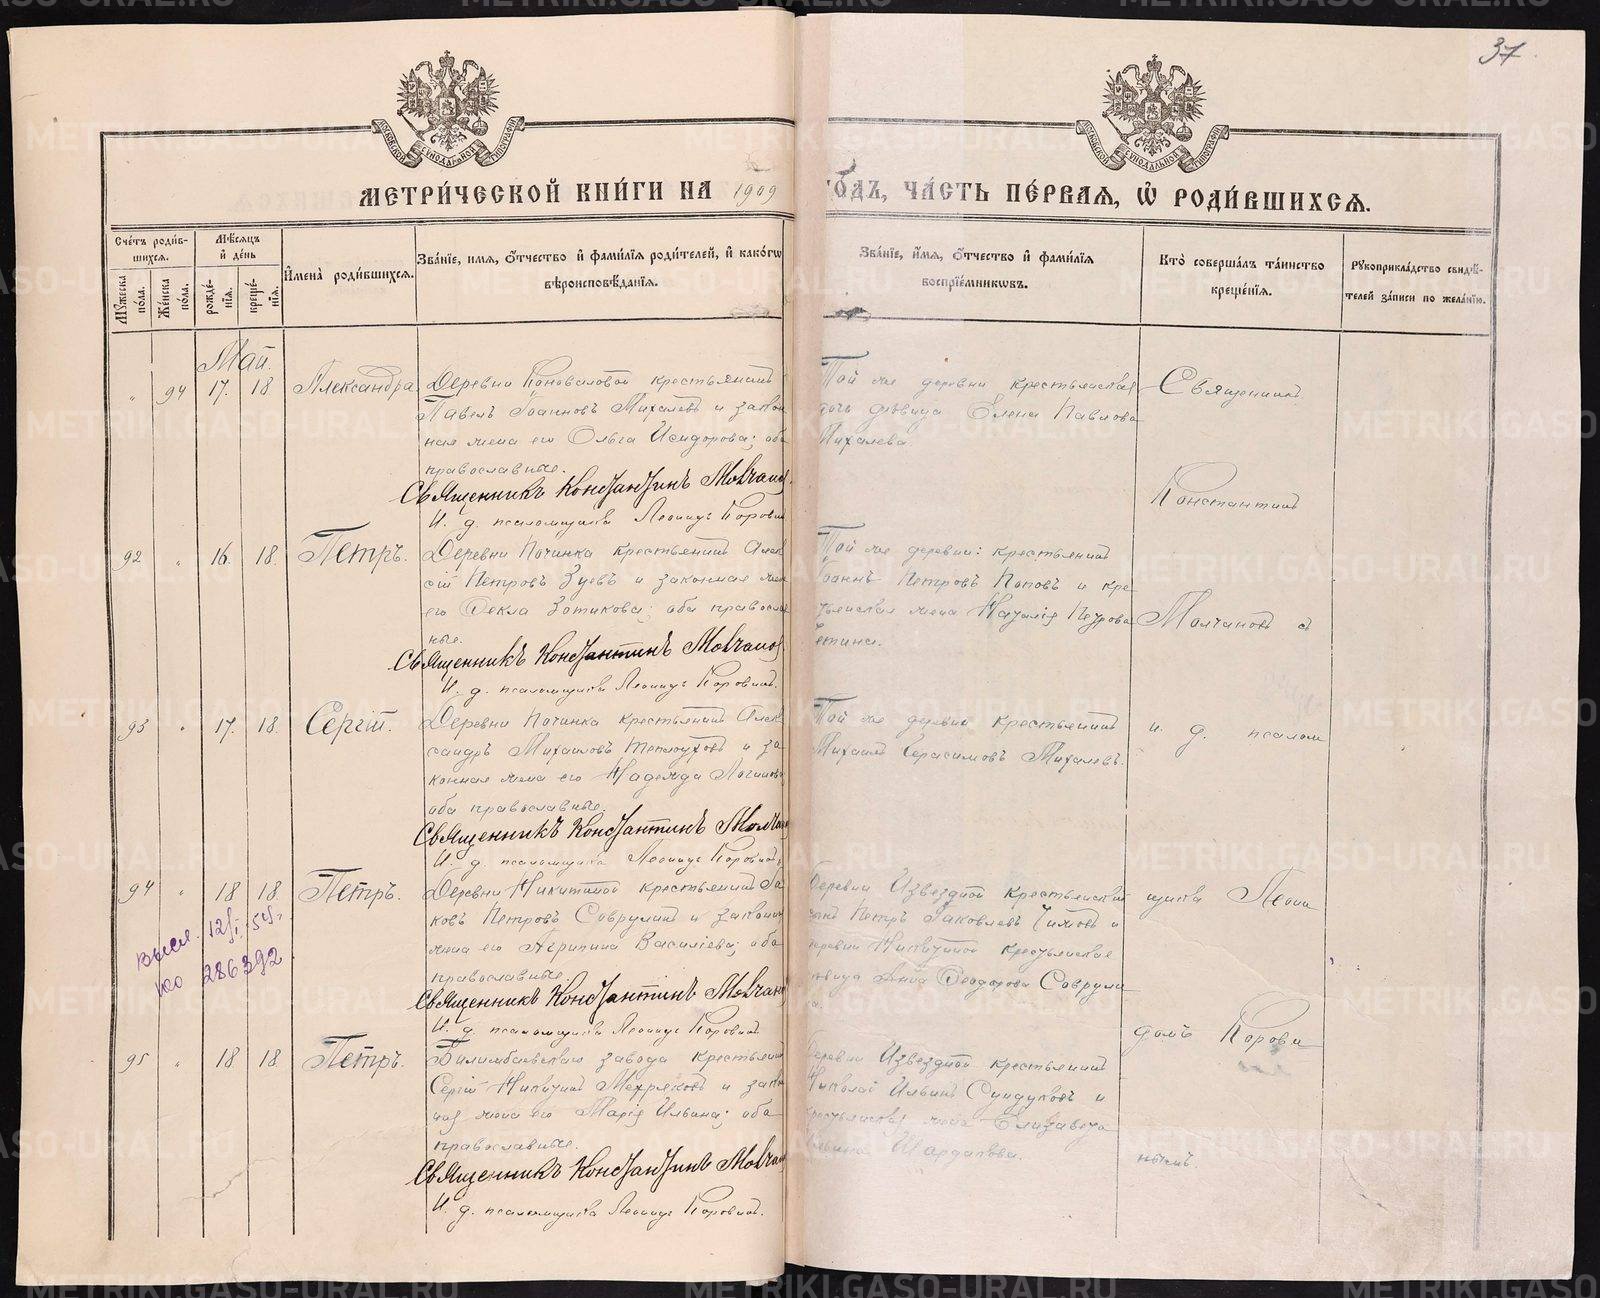 37
МЕТРИ́ЧЕСКОЙ КНИ́ГИ НА 1909
ГО́ДЪ, ЧА́СТЬ ПЕ́РВАѦ, Ѡ҆ РОДИ́ВШИХСѦ.
Сче́тъ роди́в-
шихсѧ.
Мꙋ́жеска по́ла.
Же́нска по́ла.
Мѣ́сѧцъ и҆ де́нь
рожде́-нїѧ.
креще́-нїѧ.
И҆мена̀ роди́вшихсѧ.
Зва́нїе, имѧ, ѻ҆́тчество и҆ фами́лїѧ роди́телей, и҆ како́гѡ
вѣроисповѣ́данїѧ.
Зва́нїе, и҆́мѧ, ѻ҆́тчество и҆ фами́лїѧ
воспрїе́мникѡвъ.
Кто̀ соверша́лъ та́инство
креще́нїѧ.
Рꙋкоприкла́дство свидѣ́-
телей за́писи по жела́нїю.
Май.
" 94 17. 18. Александра
Деревни Коноваловой крестьянинъ
Павелъ Іоанновъ Михалевъ и закон
ная жена его Ольга Исидорова; оба
православные.
Священникъ Константинъ Молчанов
И. д. псаломщика Леонидъ Коровин
Той же деревни крестьянская
дочь дѣвица Елена Павлова
Михалева.
92 " 16. 18. Петръ.
Деревни Починка крестьянинъ Алек
сій Петровъ Зуевъ и законная жен
его Ѳекла Зотикова; оба православ
ные.
Священникъ Константинъ Молчанов
И. д. псаломщика Леонидъ Коровинъ.
Той же деревни: крестьянинъ
Іоаннъ Петровъ Поповъ и кре
стьянская жена Наталія Петрова
93 " 17. 18. Сергій.
Деревни Починка крестьянинъ Алек
сандръ Михаиловъ Теплоуховъ и за
конная жена его Надежда Логинова
оба православные.
Священникъ Константинъ Молчан
И. д. псаломщика Леонидъ Коровинъ.
Той же деревни крестьянинъ
Михаилъ Герасимовъ Михалевъ.
94 " 18 18. Петръ.
Деревни Никитиной крестьянинъ Іа
ковъ Петровъ Соврулинъ и законн
жена его Агрипина Василіева; оба
православные.
Священникъ Константинъ Молчано
И. д. псаломщика Леонидъ Коровинъ
Деревни Извездной крестьянскій
сынъ Петръ Іаковлевъ и
деревни Никитиной крестьянская
дѣвица Анна Ѳеодорова Соврули
на.
высл. 12/I 54 г.
ИЮ 286392
95 " 18 18. Петръ.
Билимбаевскаго завода крестьянин
Сергій Никитинъ Мехряковъ и закон
ная жена его Марія Ильина; оба
православные.
Священникъ Константинъ Молчан
И. д. псаломщика Леонидъ Коровинъ.
Деревни Извездной крестьянинъ
Николай Ильинъ Сундуковъ и
крестьянская жена Елизавета
Ильина Шардакова.
Священникъ
Константинъ
Молчановъ съ
и. д. псалом
щика Леони
домъ Корови
нымъ.